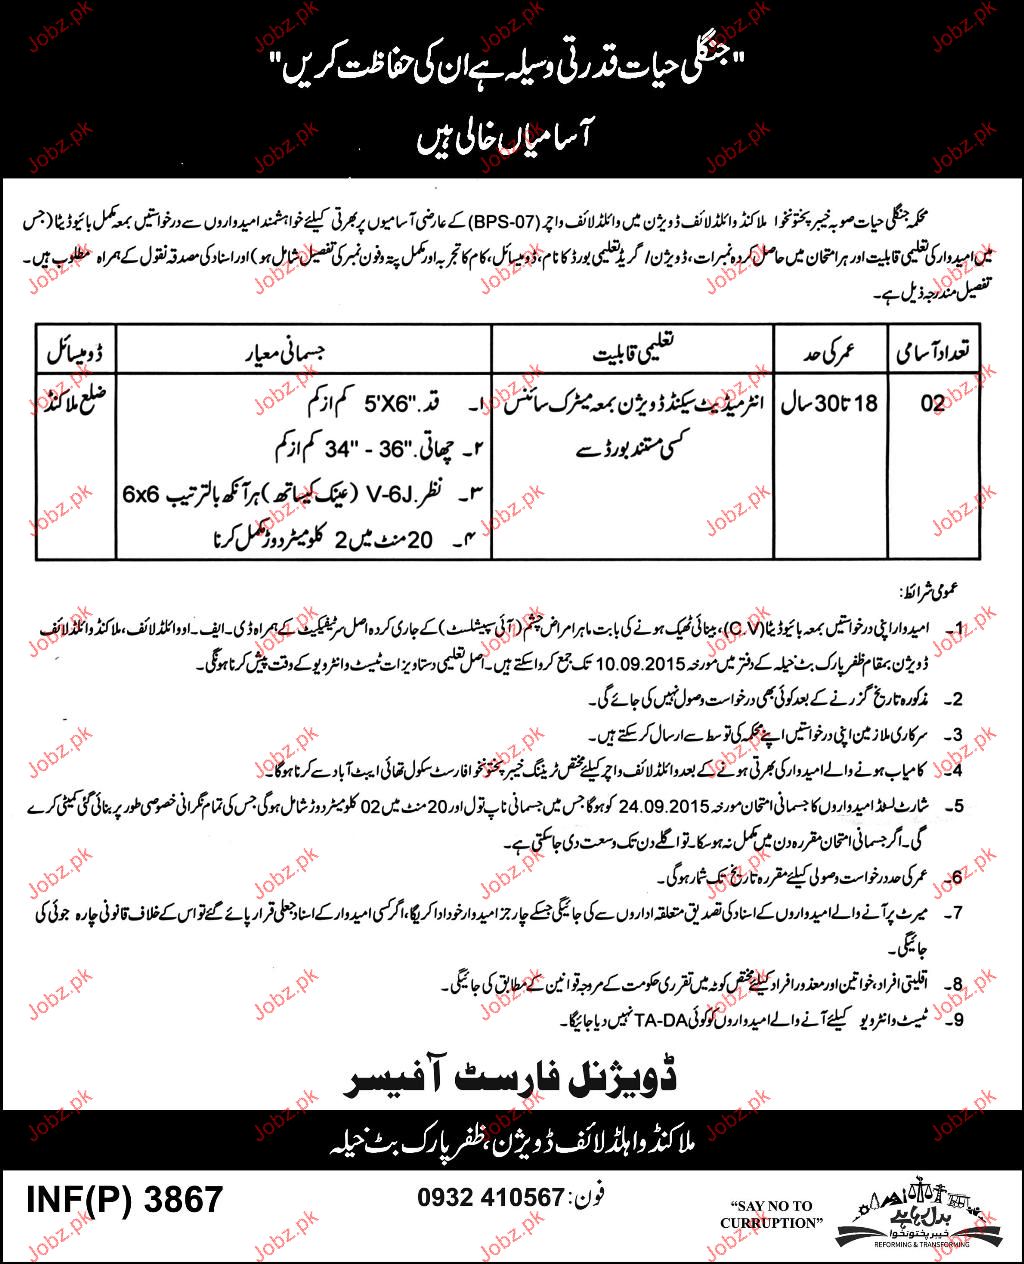 "جنگلی حیات قدرتی وسیلہ ہے ان کی حفاظت کریں"
آسامیاں خالی ہیں
محکمہ جنگلی حیات صوبہ خیبر پختونخوا ملاکنڈ وائلڈ لائف ڈویژن میں وائلڈ لائف واچر (BPS-07) کے عارضی آسامیوں پر بھرتی کیلئے خواہشمند امیدواروں سے درخواستیں بمعہ مکمل بائیو ڈیٹا (جس
میں امیدوار کی تعلیمی قابلیت اور ہر امتحان میں حاصل کردہ نمبرات، ڈویژن / گریڈ تعلیمی بورڈ کا نام، ڈومیسائل، کام کا تجربہ اور مکمل پتہ و فون نمبر کی تفصیل شامل ہو) اور اسناد کی مصدقہ نقول کے ہمراہ مطلوب ہیں۔
تفصیل مندرجہ ذیل ہے۔
تعداد آسامی عمر کی حد تعلیمی قابلیت جسمانی معیار ڈومیسائل
02 18 تا 30 سال انٹرمیڈیٹ سیکنڈ ڈویژن بمعہ میٹرک سائنس ۱۔ قد۔ 5'X6" کم از کم ضلع ملاکنڈ
کسی مستند بورڈ سے ۲۔ چھاتی۔ "36 - "34 کم از کم
۳۔ نظر۔ V-6J (عینک کیساتھ) ہر آنکھ بالترتیب 6x6
۴۔ 20 منٹ میں 2 کلومیٹر دوڑ مکمل کرنا
عمومی شرائط:
1۔ امیدوار اپنی درخواستیں بمعہ بائیو ڈیٹا (C.V)، بینائی ٹھیک ہونے کی بابت ماہر امراض چشم (آئی سپیشلسٹ) کے جاری کردہ اصل سرٹیفکیٹ کے ہمراہ ڈی۔ ایف۔ او وائلڈ لائف، ملاکنڈ وائلڈ لائف
ڈویژن بمقام ظفر پارک بٹ خیلہ کے دفتر میں مورخہ 10.09.2015 تک جمع کروا سکتے ہیں۔ اصل تعلیمی دستاویزات ٹیسٹ و انٹرویو کے وقت پیش کرنا ہونگی۔
2۔ مذکورہ تاریخ گزرنے کے بعد کوئی بھی درخواست وصول نہیں کی جائے گی۔
3۔ سرکاری ملازمین اپنی درخواستیں اپنے محکمہ کی توسط سے ارسال کر سکتے ہیں۔
4۔ کامیاب ہونے والے امیدوار کی بھرتی ہونے کے بعد وائلڈ لائف واچر کیلئے مختص ٹریننگ خیبر پختونخوا فارسٹ سکول تھائی ایبٹ آباد سے کرنا ہوگا۔
5۔ شارٹ لسٹڈ امیدواروں کا جسمانی امتحان مورخہ 24.09.2015 کو ہوگا جس میں جسمانی ناپ تول اور 20 منٹ میں 02 کلومیٹر دوڑ شامل ہوگی جس کی تمام نگرانی خصوصی طور پر بنائی گئی کمیٹی کرے
گی۔ اگر جسمانی امتحان مقررہ دن میں مکمل نہ ہو سکا۔ تو اگلے دن تک وسعت دی جا سکتی ہے۔
6۔ عمر کی حد درخواست وصولی کیلئے مقررہ تاریخ تک شمار ہوگی۔
7۔ میرٹ پر آنے والے امیدواروں کے اسناد کی تصدیق متعلقہ اداروں سے کی جائیگی جسکے چارجز امیدوار خود ادا کریگا، اگر کسی امیدوار کے اسناد جعلی قرار پائے گئے تو اس کے خلاف قانونی چارہ جوئی کی
جائیگی۔
8۔ اقلیتی افراد، خواتین اور معذور افراد کیلئے مختص کوٹہ میں تقرری حکومت کے مروجہ قوانین کے مطابق کی جائیگی۔
9۔ ٹیسٹ و انٹرویو کیلئے آنے والے امیدواروں کو کوئی TA-DA نہیں دیا جائیگا۔
ڈویژنل فارسٹ آفیسر
ملاکنڈ وائلڈ لائف ڈویژن، ظفر پارک بٹ خیلہ
INF(P) 3867
فون: 0932 410567
“SAY NO TO
CURRUPTION”
بدل رہا ہے
خیبر پختونخوا
REFORMING & TRANSFORMING
Jobz.pk